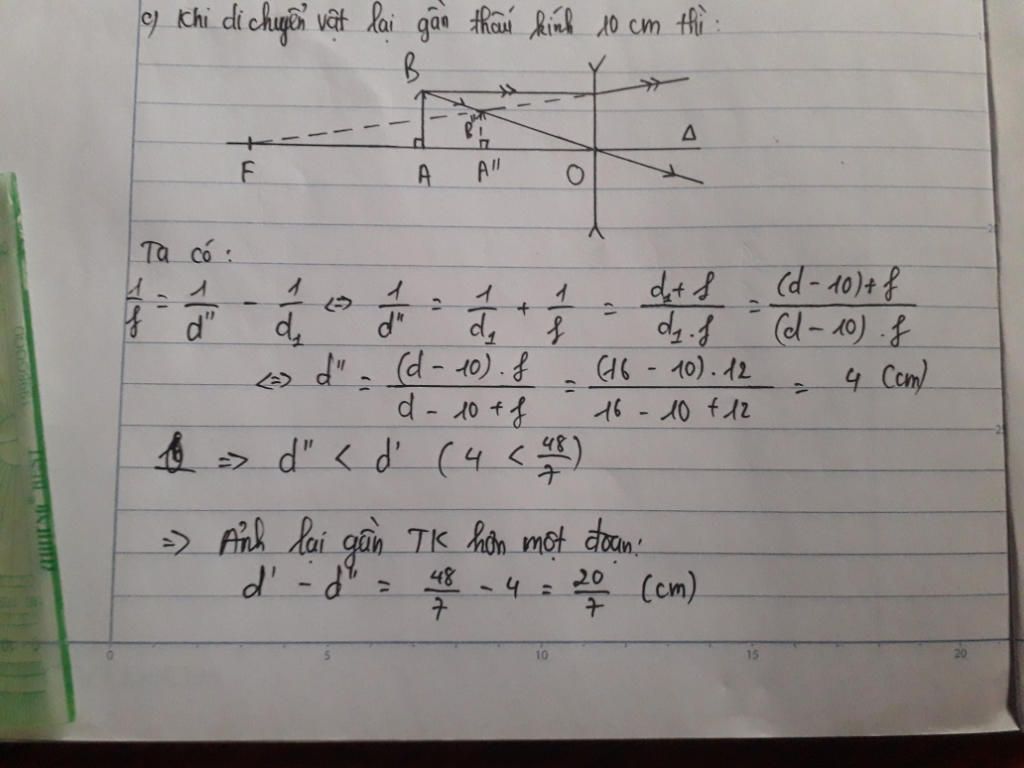 c) Khi di chuyển vật lại gần thấu kính 10 cm thì:
B
B''
Δ
F A A'' O
Ta có:
1/f = 1/d'' - 1/d₁ <=> 1/d'' = 1/d₁ + 1/f = (d₁ + f)/(d₁ . f) = ((d - 10) + f)/((d - 10) . f)
<=> d'' = ((d - 10) . f)/(d - 10 + f) = ((16 - 10) . 12)/(16 - 10 + 12) = 4 (cm)
=> d'' < d' (4 < 48/7)
=> Ảnh lại gần TK hơn một đoạn:
d' - d'' = 48/7 - 4 = 20/7 (cm)
0 5 10 15 20